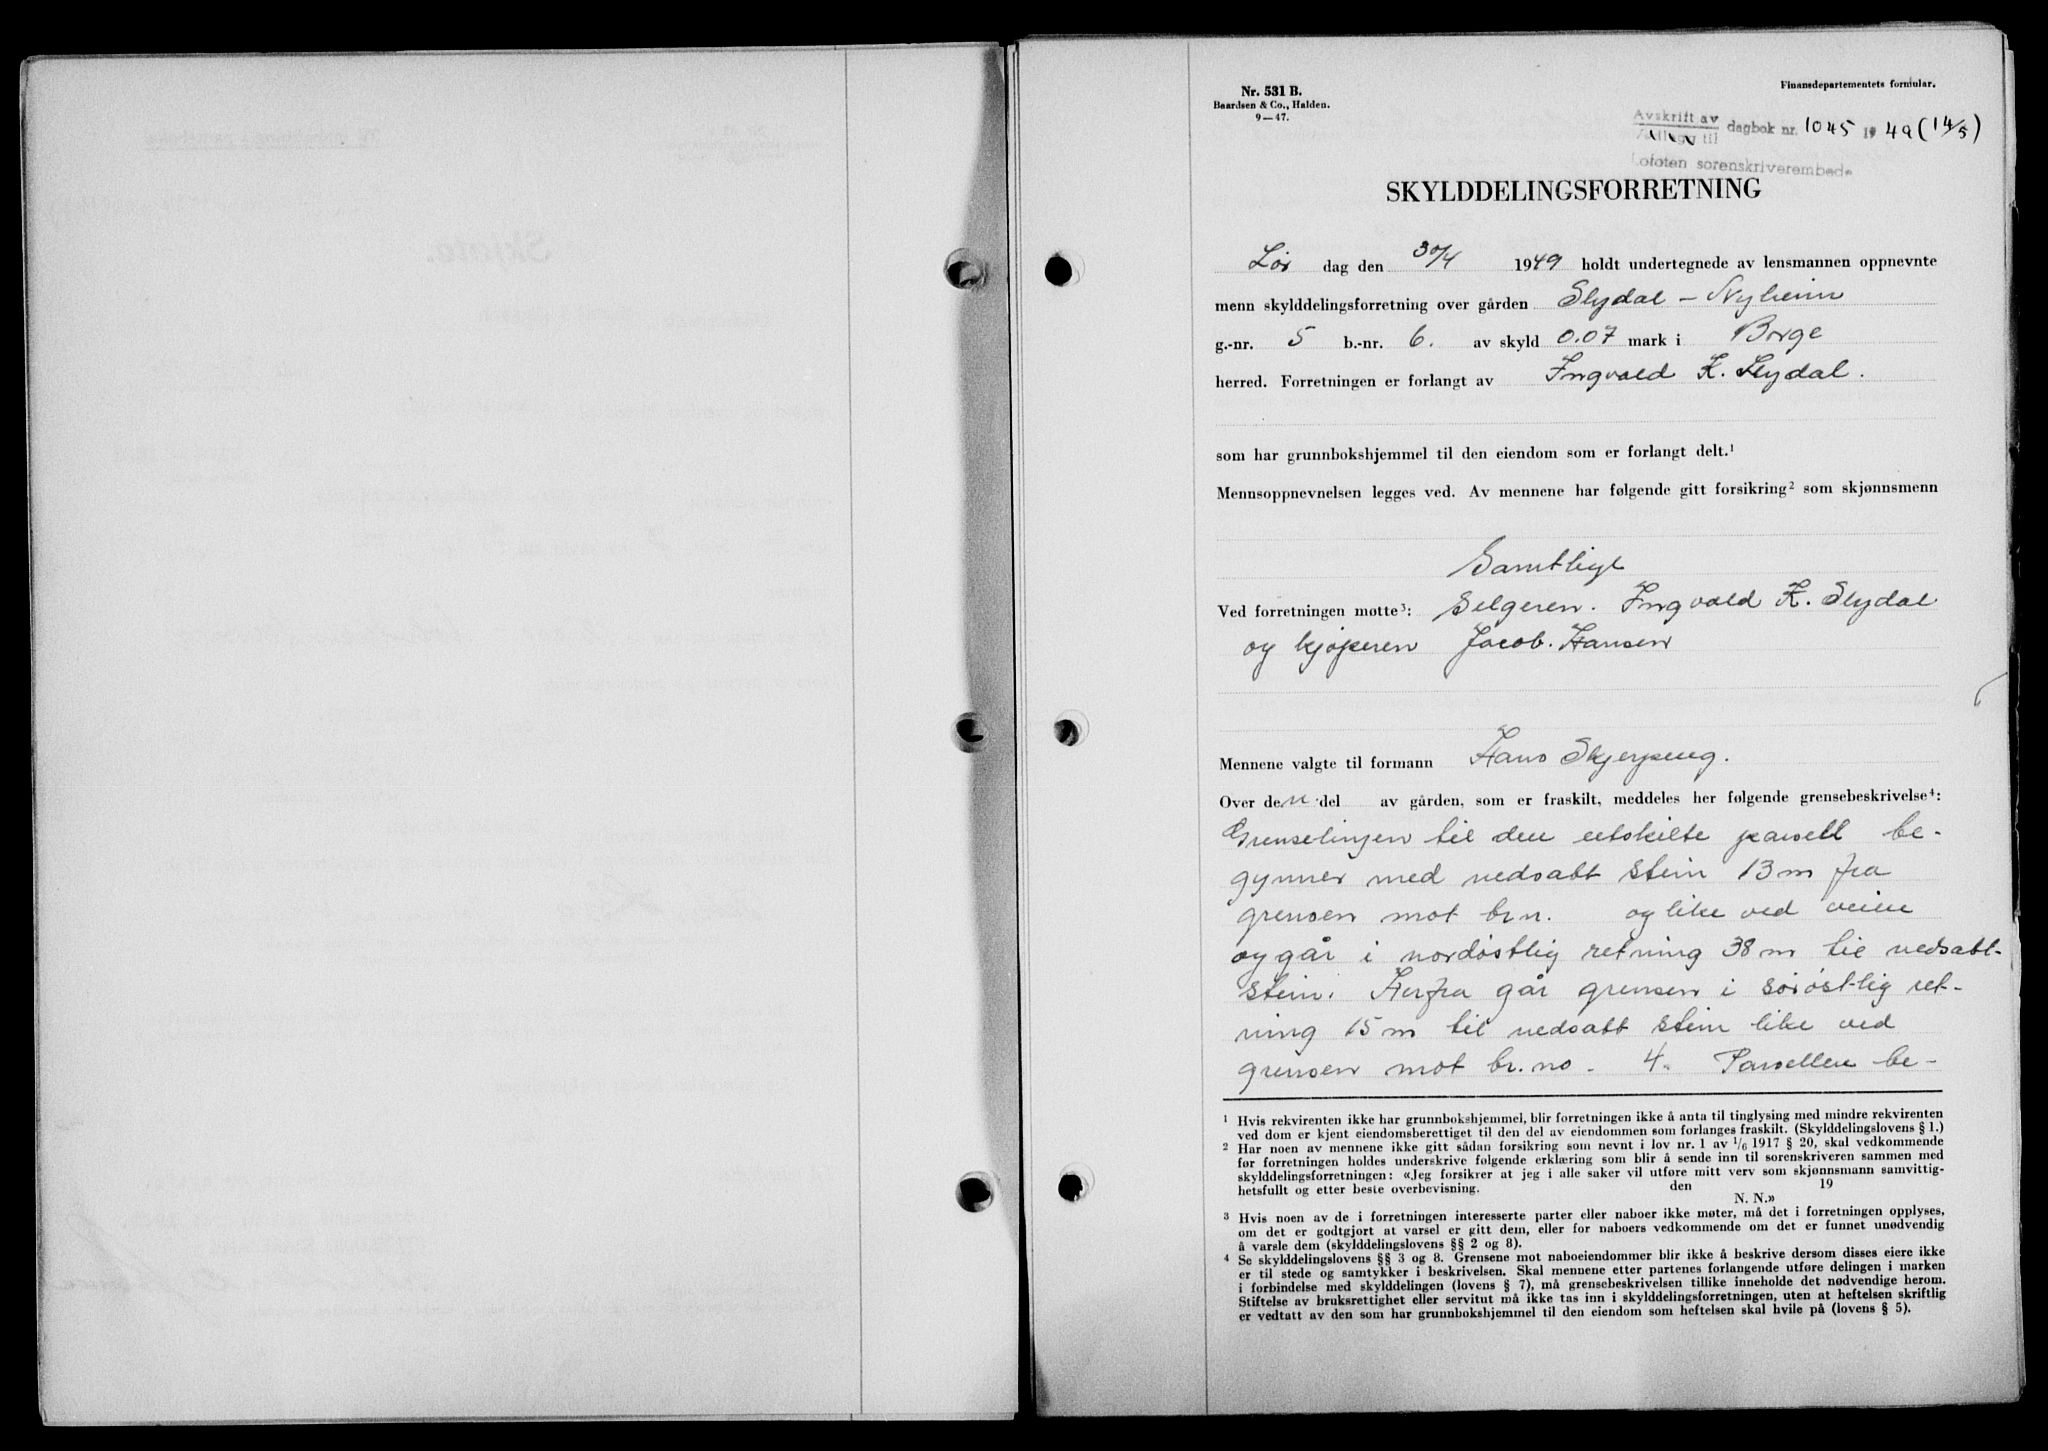 Nr. 531 B.
Baardsen & Co., Halden.
9—47.
Finansdepartementets formular.
Avskrift av
dagbok nr. 1045 1949 (14/5)
til
Lofoten sorenskriverembede
SKYLDDELINGSFORRETNING
Lør dag den 30/4 1949 holdt undertegnede av lensmannen oppnevnte
menn skylddelingsforretning over gården Slydal - Nyheim
g.-nr. 5 b.-nr. 6. av skyld 0.07 mark i Borge
herred. Forretningen er forlangt av Ingvald K. Slydal.
som har grunnbokshjemmel til den eiendom som er forlangt delt.¹
Mennsoppnevnelsen legges ved. Av mennene har følgende gitt forsikring² som skjønnsmenn
Samtlige
Ved forretningen møtte³: Selgeren. Ingvald K. Slydal
og kjøperen Jacob. Hansen
Mennene valgte til formann Hans Skjerpeng.
Over den del av gården, som er fraskilt, meddeles her følgende grensebeskrivelse⁴:
Grenselinjen til den utskilte parsell be-
gynner med nedsatt stein 13 m fra
grensen mot br.n. og like ved veien
og går i nordøstlig retning 38 m til nedsatt-
stein. Herfra går grensen i sørøstlig ret-
ning 15 m til nedsatt stein like ved
grensen mot br.no. 4. Parsellen be-
¹ Hvis rekvirenten ikke har grunnbokshjemmel, blir forretningen ikke å anta til tinglysing med mindre rekvirenten
ved dom er kjent eiendomsberettiget til den del av eiendommen som forlanges fraskilt. (Skylddelingslovens § 1.)
² Har noen av mennene ikke gitt sådan forsikring som nevnt i lov nr. 1 av 1/6 1917 § 20, skal vedkommende
før forretningen holdes underskrive følgende erklæring som blir å sende inn til sorenskriveren sammen med
skylddelingsforretningen: «Jeg forsikrer at jeg i alle saker vil utføre mitt verv som skjønnsmann samvittig-
hetsfullt og etter beste overbevisning. den 19
N. N.»
³ Hvis noen av de i forretningen interesserte parter eller naboer ikke møter, må det i forretningen opplyses,
om det er godtgjort at varsel er gitt dem, eller for naboers vedkommende om det er funnet unødvendig
å varsle dem (skylddelingslovens §§ 2 og 8).
⁴ Se skylddelingslovens §§ 3 og 8. Grensene mot naboeiendommer blir ikke å beskrive dersom disses eiere ikke
er til stede og samtykker i beskrivelsen. Skal mennene etter partenes forlangende utføre delingen i marken
i forbindelse med skylddelingen (lovens § 7), må grensebeskrivelsen tillike inneholde det nødvendige herom.
Stiftelse av bruksrettighet eller servitut må ikke tas inn i skylddelingsforretningen, uten at heftelsen skriftlig
er vedtatt av den som har grunnbokshjemmel til den eiendom som heftelsen skal hvile på (lovens § 5).